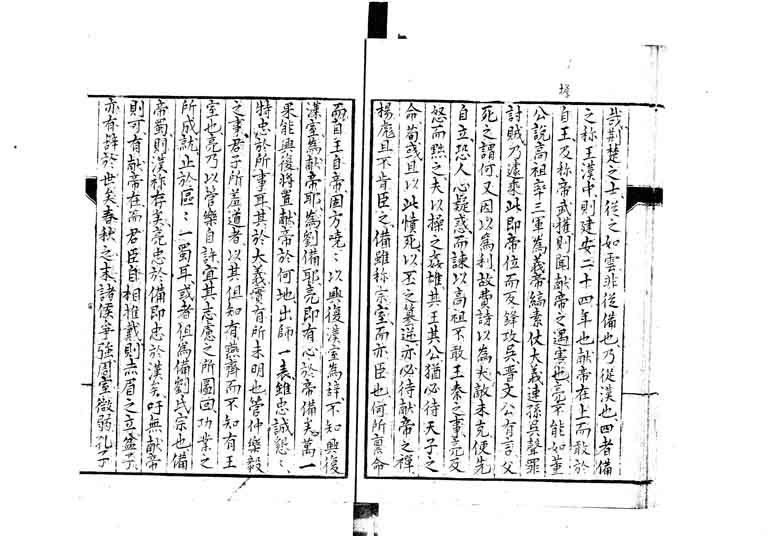 哉荆楚之士從之如雲非從備也乃從漢也四者備
之称王漢中則建安二十四年也献帝在上而敢於
自王及称帝武擔則聞献帝之遇害也亮不能如董
公說高祖率三軍爲義帝縞素仗大義連孫吳聲罪
討賊乃遽乘此即帝位而反鋒攻吳晋文公有言父
死之謂何又因以爲利故費詩以爲大敵未克便先
自立恐人心疑惑而諫以高祖不敢王秦之事亮反
怒而黜之夫以操之姦雄其王其公猶必待天子之
命荀彧且以此憤死以丕之篡逆亦必待献帝之禅
楊彪且不肯臣之備雖称宗室而亦臣也何所禀命
而自王自帝固方嘵〻以興復漢室爲辞不知興復
漢室爲献帝耶爲劉備耶亮即有心於帝備矣萬一
果能興復將置献帝於何地出師一表雖忠誠懇〻
特忠於所事耳其於大義實有所未明也管仲樂毅
之事君子所羞道者以其但知有燕齊而不知有王
室也亮乃以管樂自許宜其志慮之所圖囬功業之
所成就止於區〻一蜀耳或者但爲備劉氏宗也備
帝蜀則漢祢存矣亮忠於備即忠於漢矣吁無献帝
則可有献帝在而君臣自相推戴則赤眉之立盆子
亦有辞於世矣春秋之末諸侯爭強周室微弱孔子